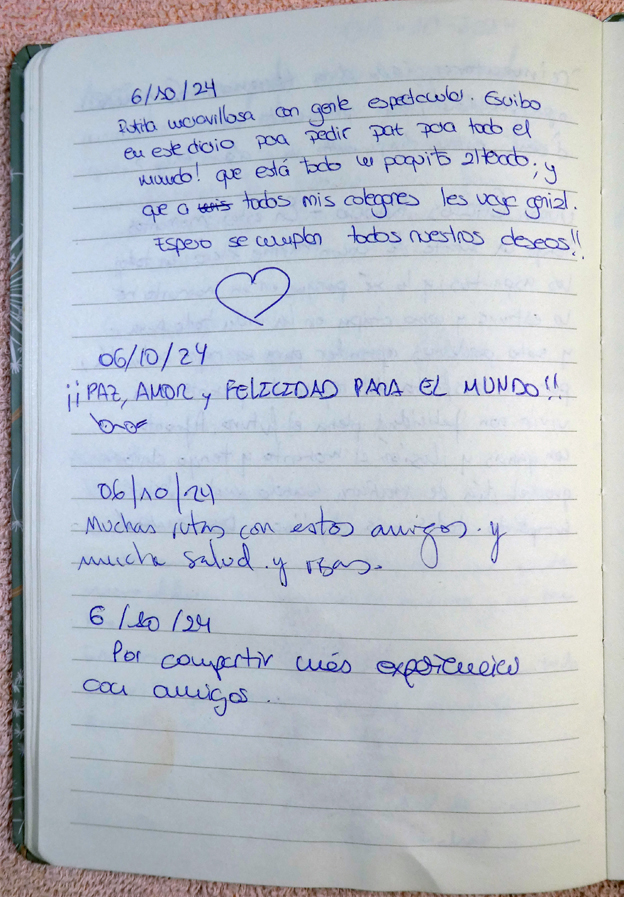 6/10/24
Rutita maravillosa con gente espectacular. Escribo
en este diario para pedir paz para todo el
mundo! que está todo un poquito alterado; y
que a todos mis colegones les vaya genial.
Espero se cumplan todos nuestros deseos!!
06/10/24
¡¡PAZ, AMOR y FELICIDAD PARA EL MUNDO!!
06/10/24
Muchas rutas con estos amigos. y
mucha salud. y risas.
6/10/24
Por compartir más experiencias
con amigos..